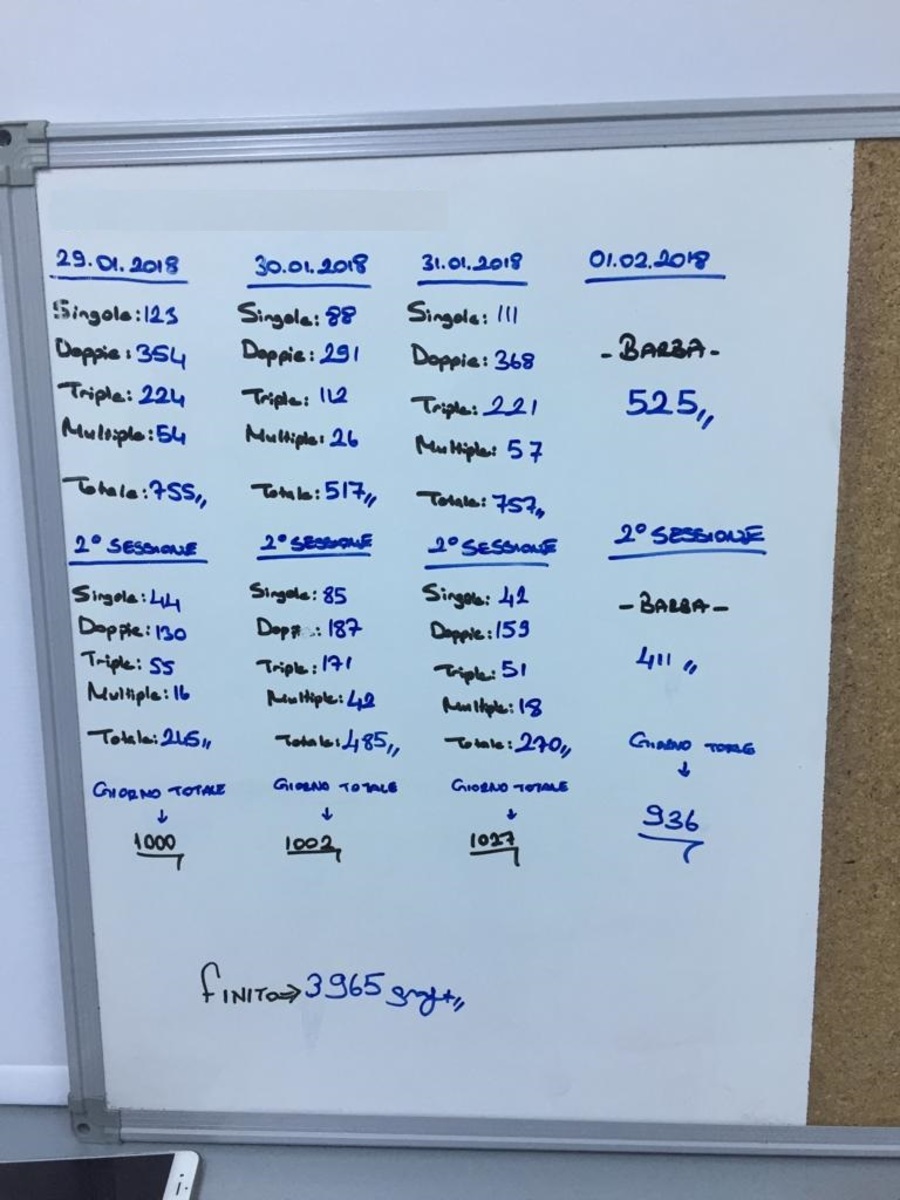 29.01.2018
Singole: 123
Doppie: 354
Triple: 224
Multiple: 54
Totale: 755,,
2° SESSIONE
Singole: 44
Doppie: 130
Triple: 55
Multiple: 16
Totale: 245,,
GIORNO TOTALE
↓
1000
30.01.2018
Singole: 88
Doppie: 291
Triple: 112
Multiple: 26
Totale: 517,,
2° SESSIONE
Singole: 85
Dopp : 187
Triple: 171
Multiple: 42
Totale: 485,,
GIORNO TOTALE
↓
1002
31.01.2018
Singole: 111
Doppie: 368
Triple: 221
Multiple: 57
Totale: 757,,
2° SESSIONE
Singole: 42
Doppie: 159
Triple: 51
Multiple: 18
Totale: 270,,
GIORNO TOTALE
↓
1027
01.02.2018
- BARBA -
525,,
2° SESSIONE
- BARBA -
411 ,,
GIORNO TOTALE
↓
936
FINITO ⇒ 3965 graft,,